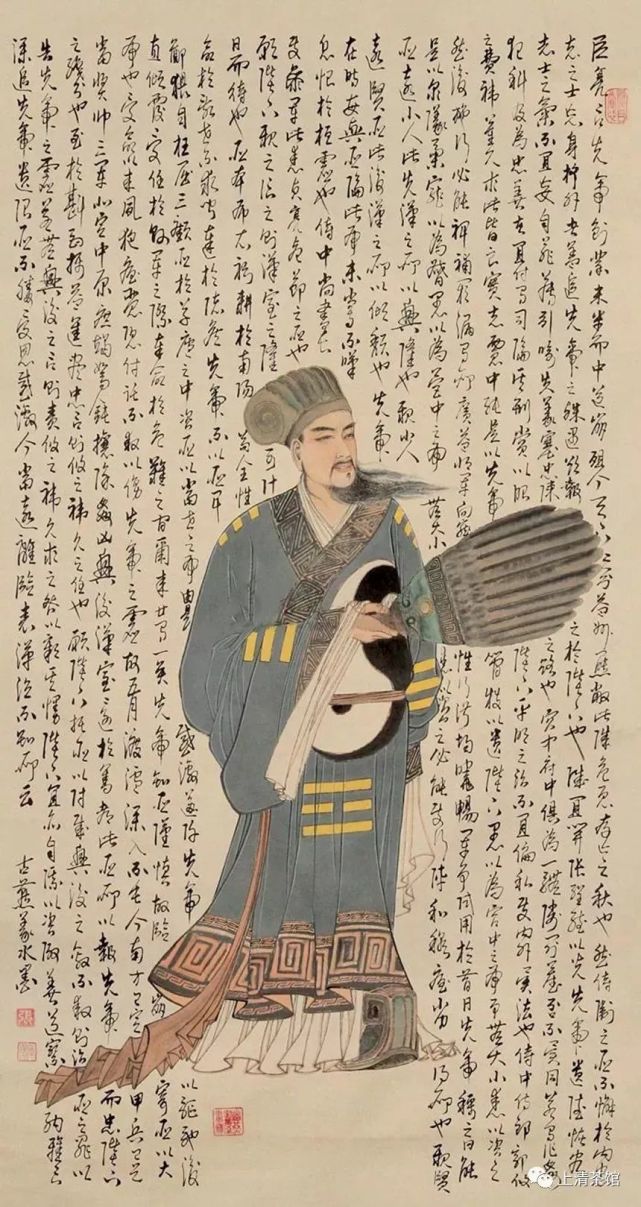 臣亮言先帝創業未半而中道崩殂今天下三分益州疲敝此誠危急存亡之秋也然侍衛之臣不懈於內
志之士忘身於外者蓋追先帝之殊遇欲報之於陛下也誠宜開張聖聽以光先帝遺德恢宏
志士之氣不宜妄自菲薄引喻失義塞忠諫之路也宮中府中俱為一體陟罰臧否不宜異同若有作姦
犯科及為忠善者宜付有司論其刑賞以昭陛下平明之治不宜偏私使內外異法也侍中侍郎郭攸
之費禕董允等此皆良實志慮忠純是以先帝簡拔以遺陛下愚以為宮中之事事無大小悉以咨之
然後施行必能裨補闕漏有所廣益將軍向寵性行淑均曉暢軍事試用於昔日先帝稱之曰能
是以眾議舉寵以為督愚以為營中之事無大小悉以咨之必能使行陣和穆優劣得所也親賢
臣遠小人此先漢之所以興隆也親小人
遠賢臣此後漢之所以傾頹也先帝
在時每與臣論此事未嘗不嘆
息恨於桓靈也侍中尚書長
史參軍此悉貞亮死節之臣也
願陛下親之信之則漢室之隆可計
日而待也臣本布衣躬耕於南陽苟全性
命於亂世不求聞達於諸侯先帝不以臣卑
鄙猥自枉屈三顧臣於草廬之中咨臣以當世之事由是感激遂許先帝以驅馳後
值傾覆受任於敗軍之際奉命於危難之間爾來廿有一矣先帝知臣謹慎故臨崩寄臣以大
事也受命以來夙夜憂慮恐付託不效以傷先帝之靈故五月渡瀘深入不毛今南方已定甲兵已足
當獎帥三軍北定中原庶竭駑鈍攘除姦凶興復漢室還於舊都此臣所以報先帝而忠陛下
之職分也至於斟酌損益進盡忠言則攸之禕允之任也願陛下托臣以討賊興復之效不效則治臣之罪以
告先帝之靈若無興復之言則責攸之禕允等之咎以彰其慢陛下宜亦自謀以咨諏善道察納雅言
深追先帝遺詔臣不勝受恩感激今當遠離臨表涕泣不知所云
古燕篆水墨
上清茶馆